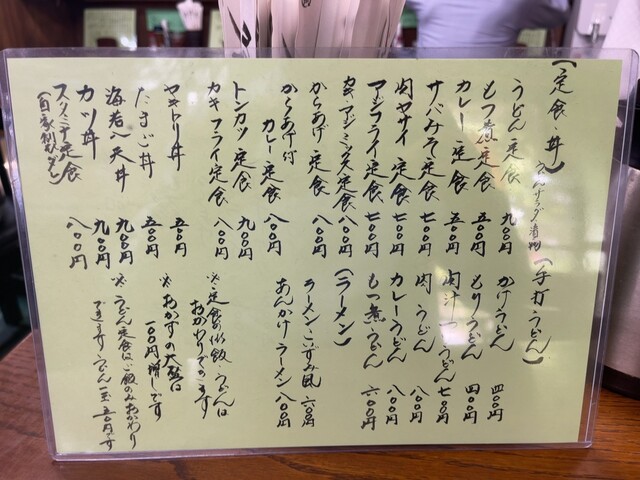 (定食・丼)
漬物
うどん定食 九〇〇円
もつ煮定食 五〇〇円
カレー定食 五〇〇円
サバみそ定食 七〇〇円
肉ヤサイ定食 七〇〇円
アジフライ定食 七〇〇円
カキ・アジミックス定食 八〇〇円
からあげ定食 八〇〇円
からあげ付
カレー定食 八〇〇円
トンカツ定食 九〇〇円
カキフライ定食 八〇〇円
ヤキトリ丼 五〇〇円
たまご丼 五〇〇円
海老天丼 九〇〇円
カツ丼 九〇〇円
スタミナ定食 八〇〇円
(自家製ダレ)
(手打うどん)
かけうどん 四〇〇円
もりうどん 四〇〇円
肉汁つけうどん 七〇〇円
肉うどん 八〇〇円
カレーうどん 八〇〇円
もつ煮うどん 六〇〇円
(ラーメン)
ラーメンこいずみ風 六〇〇円
あんかけラーメン 八〇〇円
※定食の御飯・うどんは
おかわりできます
※おかずの大盛は
一〇〇円増しです
※うどん定食はご飯のみおかわり
できます・うどん一玉五〇円です